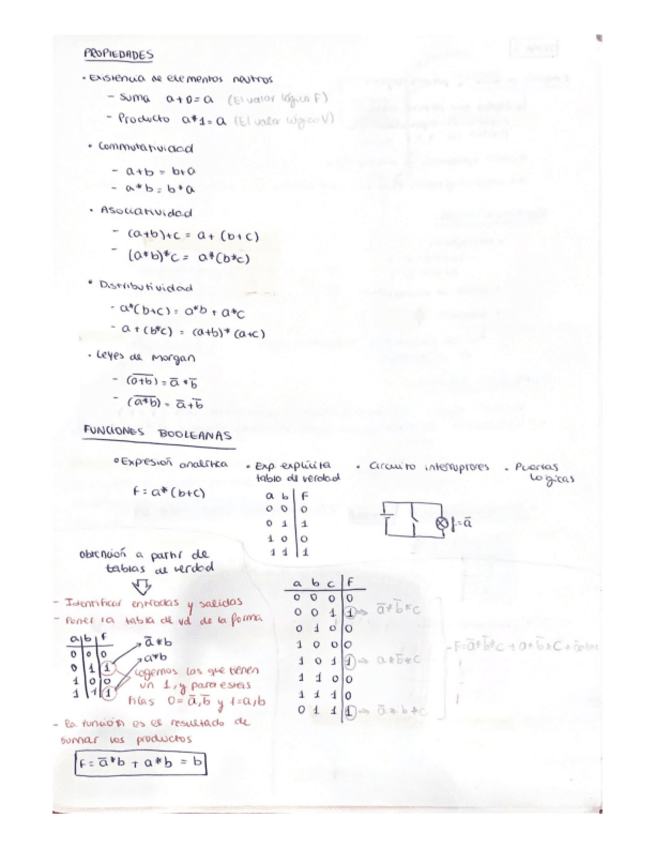 PROPIEDADES
• Existencia de elementos neutros
- Suma a+0=a (El valor lógico F)
- Producto a*1=a (El valor lógico V)
• Conmutatividad
- a+b = b+a
- a*b = b*a
• Asociatividad
- (a+b)+c = a+(b+c)
- (a*b)*c = a*(b*c)
• Distributividad
- a*(b+c) = a*b + a*c
- a+(b*c) = (a+b)*(a+c)
• Leyes de Morgan
- (a̅+̅b̅) = a̅*b̅
- (a̅*̅b̅) = a̅+b̅
FUNCIONES BOOLEANAS
• Expresión analítica
f = a*(b+c)
• Exp. explícita
tabla de verdad
a b F
0 0 0
0 1 1
1 0 0
1 1 1
• Circuito interruptores
f=a̅
• Puertas
lógicas
Obtención a partir de
tablas de verdad
- Identificar entradas y salidas
- Poner la tabla de vd de la forma
a b f
0 0 0
0 1 1
1 0 0
1 1 1
a̅*b
a*b
cogemos las que tienen
un 1, y para estas
filas 0=a̅,b̅ y 1=a,b
- La función es el resultado de
sumar los productos
f = a̅*b + a*b = b
a b c F
0 0 0 0
0 0 1 1 → a̅*b̅*c
0 1 0 0
1 0 0 0
1 0 1 1 → a*b̅*c
1 1 0 0
1 1 1 0
0 1 1 1 → a̅*b*c
- F=a̅*b̅*c + a*b̅*c +